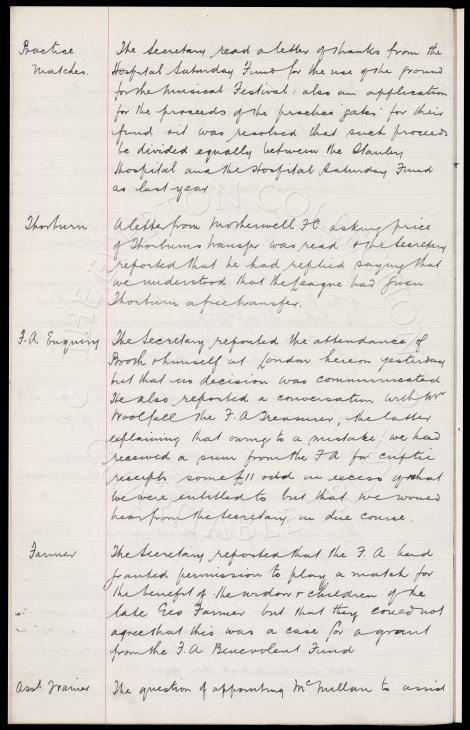 Practice The Secretary read a letter of thanks from the
Matches. Hospital Saturday Fund for the use of the ground
for the Musical Festival: also an application
for the proceeds of the practice 'gates' for their
fund & it was resolved that such proceeds
be divided equally between the Stanley
Hospital and the Hospital Saturday Fund
as last year
Thorburn A letter from Motherwell F.C. asking price
of Thorburn's transfer was read & the Secretary
reported that he had replied saying that
we understood that the League had given
Thorburn a free transfer.
F.A Enquiry The Secretary reported the attendance of
Booth & himself at London hereon yesterday
but that no decision was communicated
He also reported a conversation with Mr
Woolfall the F.A Treasurer, the latter
explaining that owing to a mistake, we had
received a sum from the FA for cuptie
receipts some £11 odd in excess of what
we were entitled to but that we would
hear from the Secretary in due course.
Farmer The Secretary reported that the F.A had
granted permission to play a match for
the benefit of the widow & children of the
late Geo Farmer but that they could not
agree that this was a case for a grant
from the F.A Benevolent Fund
Asst. Trainer The question of appointing McMillan to assist